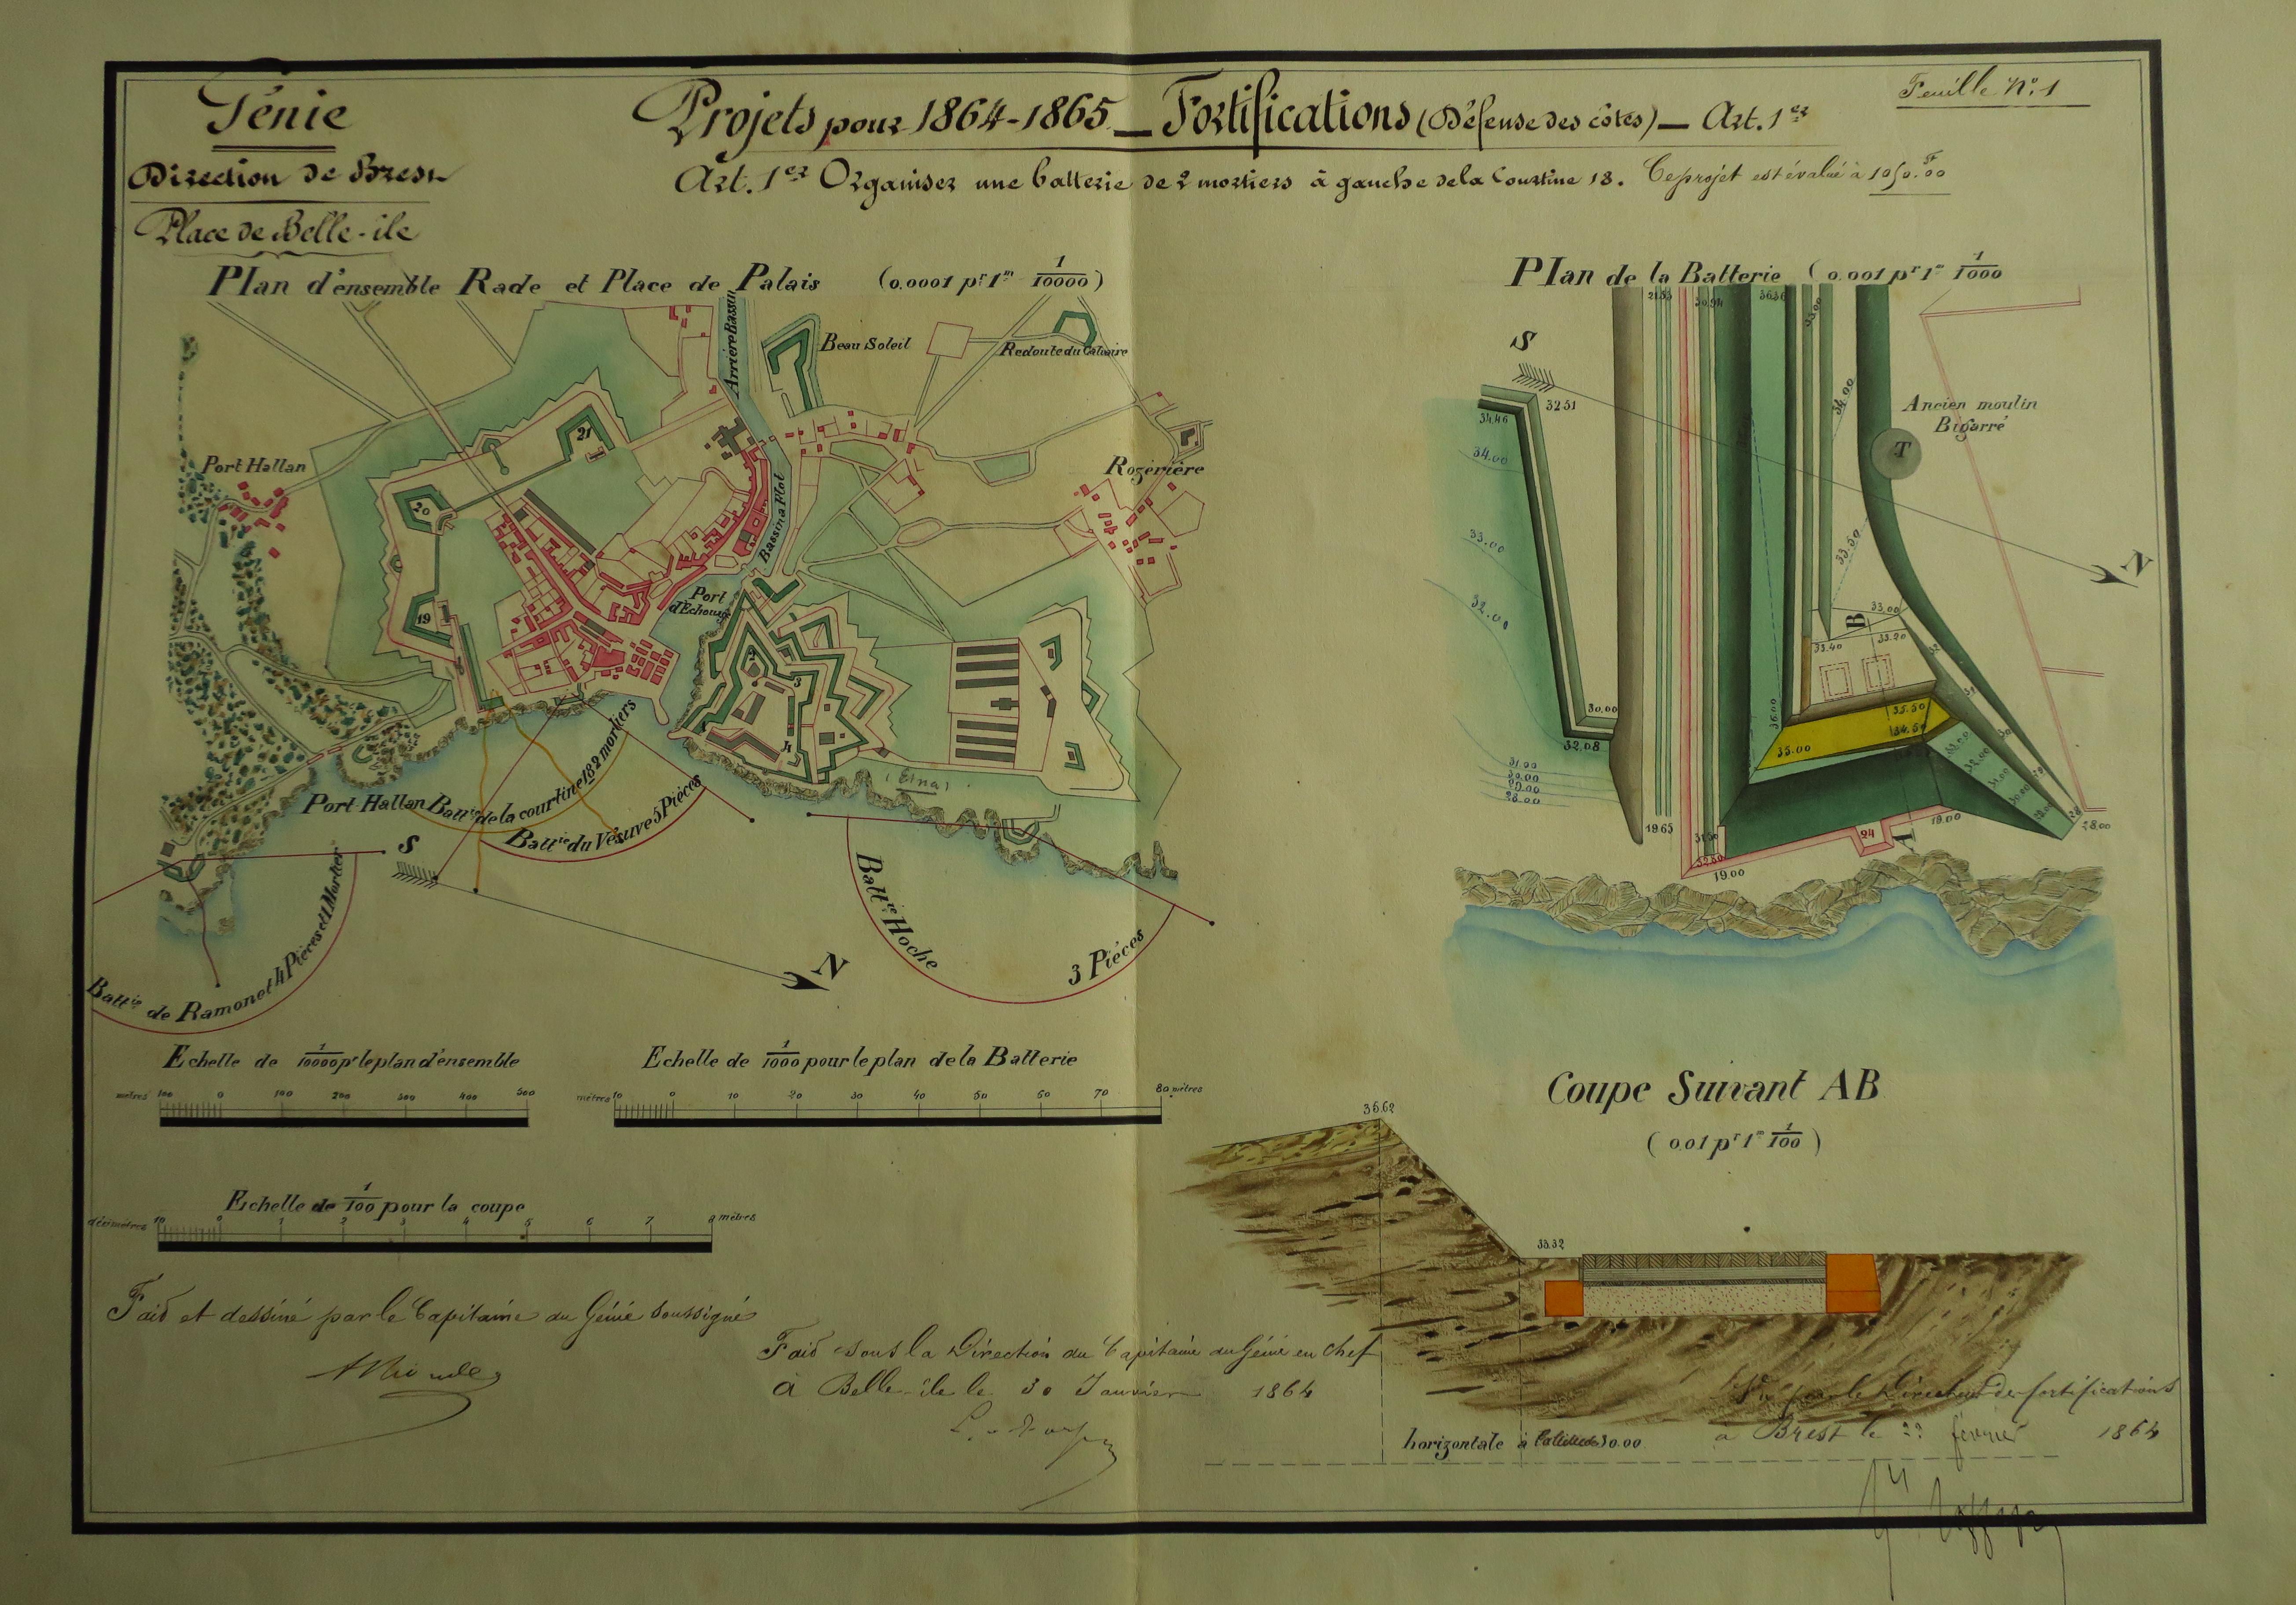 Génie
Direction de Brest
Place de Belle-ile
Projets pour 1864-1865 — Fortifications (Défense des côtes) — Art. 1er
Feuille No. 1
Art. 1er Organiser une batterie de 2 mortiers à gauche de la Courtine 18. Ce projet est évalué à 1050.F00
Plan d'ensemble Rade et Place de Palais (0.0001 pr 1m 1/10000)
Arrière Bassin
Beau Soleil
Redoute du Calvaire
Port Hallan
21
20
19
Bassin a Flot
Rozérière
Port d'Echouage
2
3
4
(Etna)
Port Hallan
Battie de la courtine 18 2 mortiers
Battie du Vésuve 5 Pièces
Battie Hoche
3 Pièces
Battie de Ramonet 4 Pièces et 1 Mortier
S
N
Plan de la Batterie (0.001 pr 1m 1/1000
S
N
30.94
36.36
33.00
34.00
34.46
32.51
34.00
33.00
32.00
33.50
Ancien moulin
Bigarré
T
B
33.00
33.20
33.40
30.00
32.08
36.00
35.50
34.50
35.00
31.00
30.00
29.00
28.00
19.65
19.00
24
19.00
A
28.00
Echelle de 1/10000 pr le plan d'ensemble
mètres 100 0 100 200 300 400 500
Echelle de 1/1000 pour le plan de la Batterie
mètres 10 0 10 20 30 40 50 60 70 80 mètres
Echelle de 1/100 pour la coupe
décimètres 10 0 1 2 3 4 5 6 7 8 mètres
Coupe Suivant AB
(0.01 pr 1m 1/100)
36.62
33.32
horizontale à 30.00
Fait et dessiné par le Capitaine du Génie soussigné
Fait sous la Direction du Capitaine du Génie en chef
à Belle-ile le 30 Janvier 1864
Vu par le Directeur des fortifications
à Brest le 22 février 1864